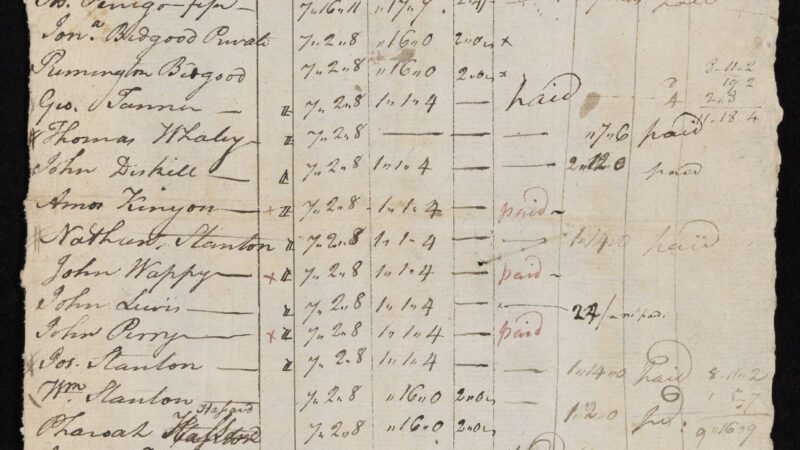 7 " 16 " 11 " 17 " 7
Jon.a Bidgood Private 7 " 2 " 8 " 16 " 0 2 " 0s x
Remington Bidgood 7 " 2 " 8 " 16 " 0 2 " 0s x 8-11-2
Geo. Tanner — 7 " 2 " 8 1 " 1 " 4 — paid 4 2 " 8
11-18 4
Thomas Whaley — 7 " 2 " 8 — — — " 7 " 6 paid
John Diskill — 7 " 2 " 8 1 " 1 " 4 — — 2 " 12 " 0 paid
Amos Kinyon — x 7 " 2 " 8 - 1 " 1 " 4 — paid -
Nathan. Stanton 7 " 2 " 8 1 " 1 " 4 — — 1 " 14 " 0 paid
John Wappy — x 7 " 2 " 8 1 " 1 " 4 — paid -
John Lewis — 7 " 2 " 8 1 " 1 " 4 — 24/
John Perry — x 7 " 2 " 8 1 " 1 " 4 — paid
Jos. Stanton — 7 " 2 " 8 1 " 1 " 4 — — 1 " 14 " 0 paid 8-11-2
Wm Stanton 7 " 2 " 8 " 16 " 0 2 " 0s
Hassard
Pharoah 7 " 2 " 8 " 16 " 0 2 " 0s 1 " 2 " 0 pd: 9 " 16 " 9